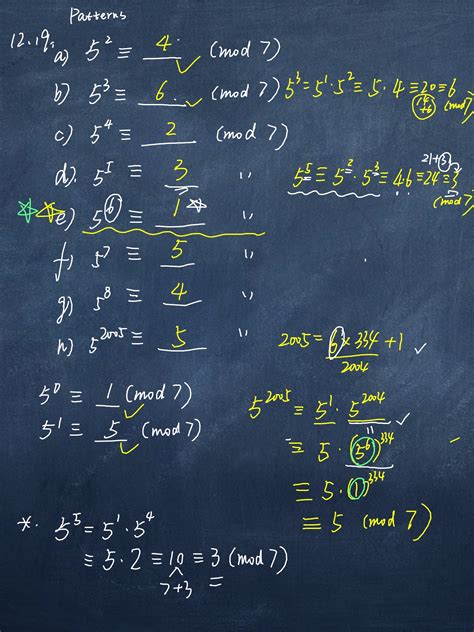 Patterns
12.19. a) 5² ≡ 4 (mod 7)
b) 5³ ≡ 6 (mod 7) 5³ = 5¹·5² ≡ 5·4 ≡ 20 ≡ 6 (mod 7)
14+6
c) 5⁴ ≡ 2 (mod 7)
d). 5⁵ ≡ 3 " 5⁵ ≡ 5²·5³ ≡ 4·6 ≡ 24 ≡ 3 (mod 7)
21+3
e) 5⁶ ≡ 1 "
f) 5⁷ ≡ 5
g) 5⁸ ≡ 4 "
h) 5²⁰⁰⁵ ≡ 5 " 2005 = 6×334+1
2004
5⁰ ≡ 1 (mod 7)
5¹ ≡ 5 (mod 7)
5²⁰⁰⁵ ≡ 5¹·5²⁰⁰⁴
≡ 5·(5⁶)³³⁴
≡ 5·(1)³³⁴
≡ 5 (mod 7)
*. 5⁵ = 5¹·5⁴
≡ 5·2 ≡ 10 ≡ 3 (mod 7)
7+3 =